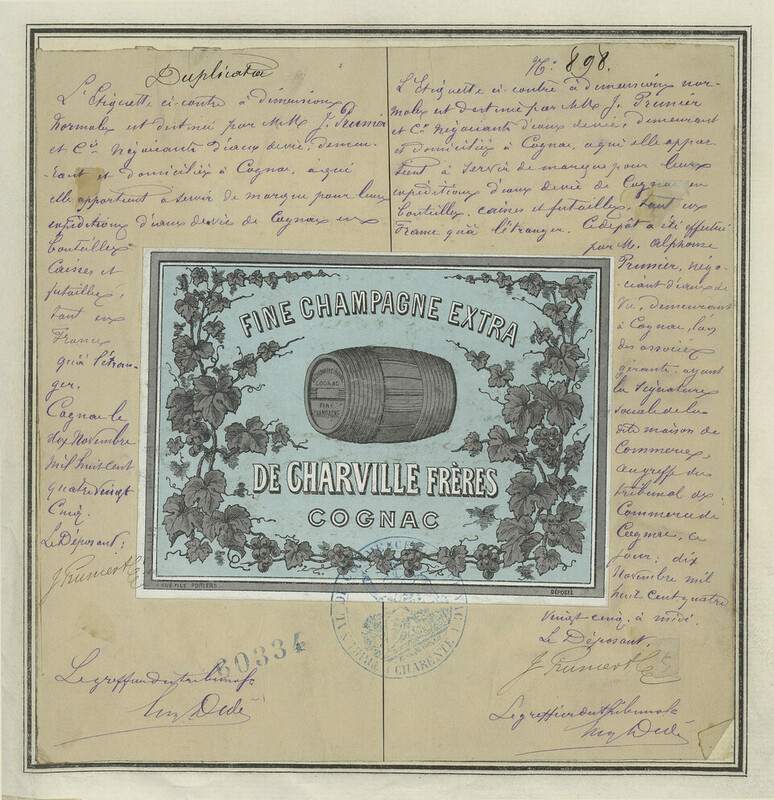 Duplicata
L'Etiquette ci-contre à dimensions
Normales est destiné par MM. J. Prunier
et Cie Négociants d'eaux de vie, demeu-
rant et domiciliés à Cognac, à qui
elle appartient à servir de marque pour leurs
expéditions d'eaux de vie de Cognac en
bouteilles
Caisses et
futailles,
tant en
France
qu'à l'étran-
ger.
Cognac le
dix Novembre
mil huit cent
quatre vingt
Cinq.
Le Déposant:
J. Prunier & Cie
Le greffier du tribunal
No: 898.
L'Etiquette ci-contre à dimensions nor-
males est destiné par MM. J. Prunier
et Cie Négociants d'eaux de vie, demeurant
et domiciliés à Cognac, à qui elle appar-
tient à servir de marque pour leurs
expéditions d'eaux de vie de Cognac en
bouteilles, caisses et futailles, tant en
France qu'à l'étranger. Ce dépôt a été effectué
par M. Alphonse
Prunier, négo-
ciant d'eaux de
vie, demeurant
à Cognac, l'un
des associés
gérants, ayant
la signature
sociale de la
dite maison de
Commerce,
au greffe du
tribunal de
Commerce de
Cognac, ce
jour: dix
Novembre mil
huit cent quatre
vingt cinq, à midi.
Le Déposant,
J. Prunier & Cie
Le greffier du tribunal
FINE CHAMPAGNE EXTRA
COGNAC
FINE
CHAMPAGNE
DE CHARVILLE FRÈRES
COGNAC
POITIERS
DÉPOSÉ
30334
CHARENTE